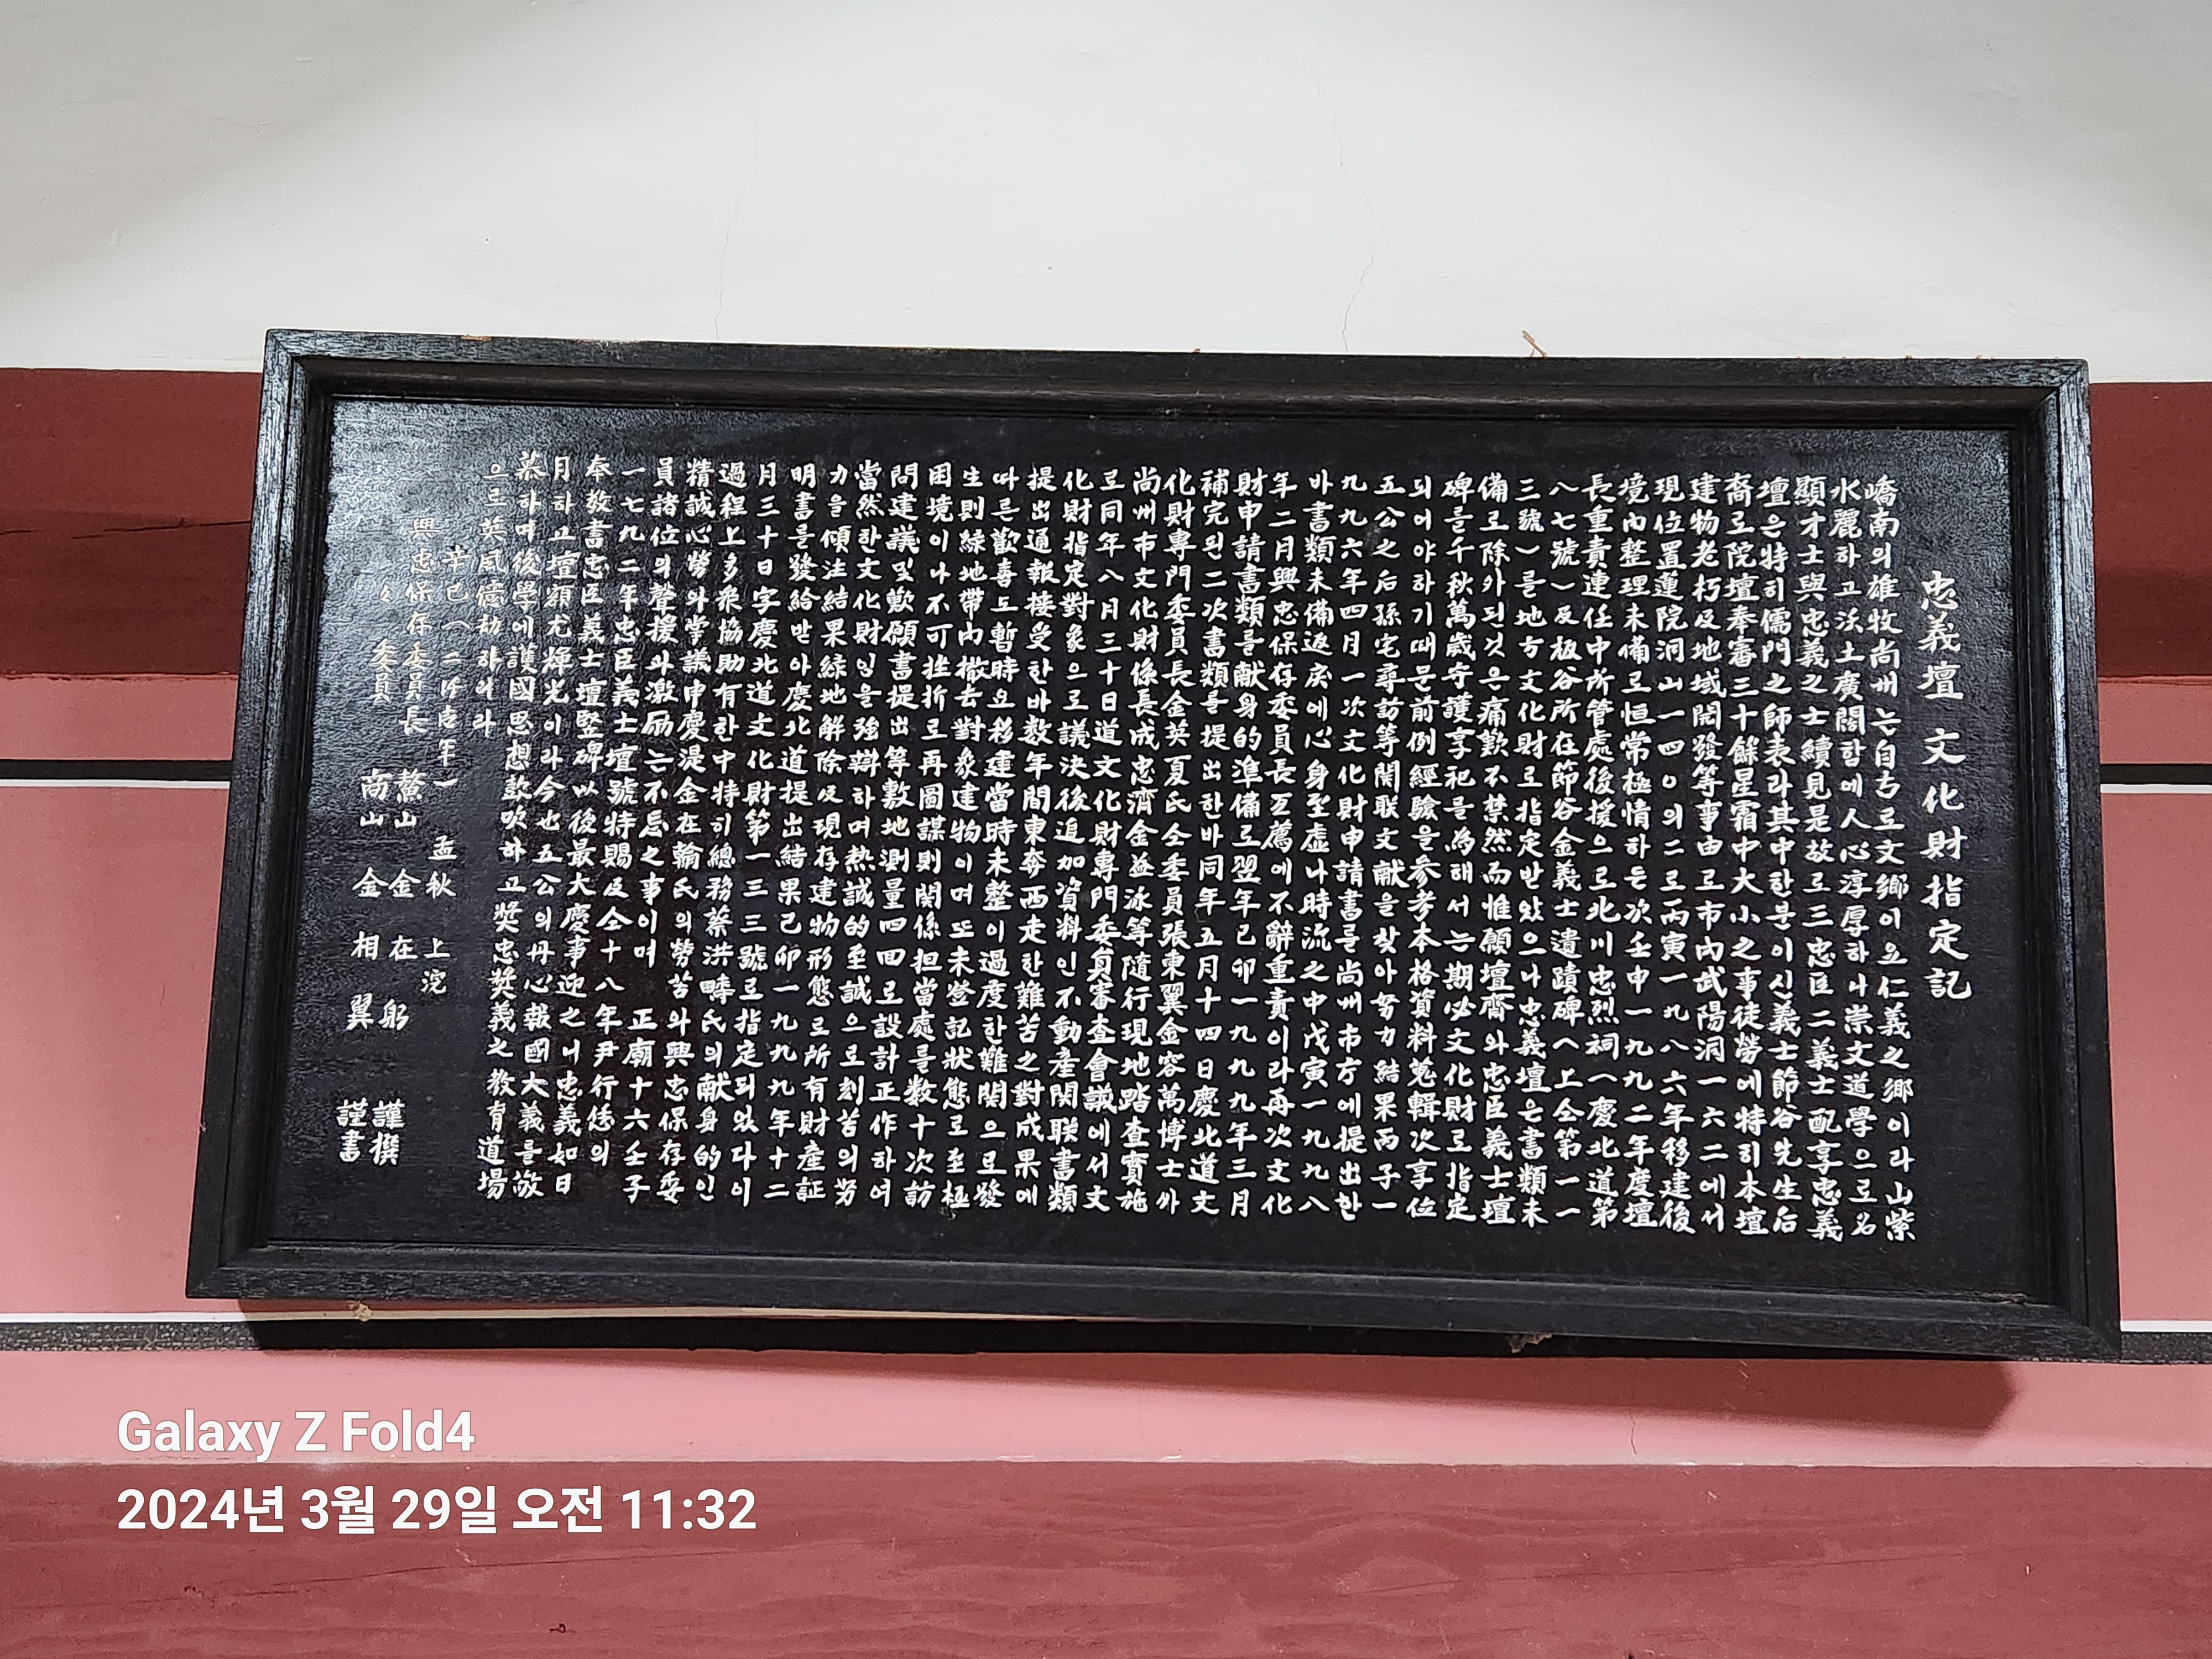 忠義壇 文化財指定記
嶠南의雄牧尚州는自古로文鄉이요仁義之鄉이라山紫
水麗하고沃土廣闊함에人心淳厚하니崇文道學으로名
顯才士與忠義之士續見是故로三忠臣二義士配享忠義
壇은特히儒門之師表라其中한분이신義士節谷先生后
裔로院壇奉審三十餘星霜中大小之事徒勞에特히本壇
建物老朽及地域開發等事由로市內武陽洞一六二에서
現位置蓮院洞山一四０의二로丙寅一九八六年移建後
境內整理未備로恒常極情하든次壬申一九九二年度壇
長重責連任中所管處後援으로北川忠烈祠(慶北道第
八七號)及板谷所在節谷金義士遺蹟碑(上仝第一一
三號)를地方文化財로指定받았으나忠義壇은書類未
備로除外되것은痛歎不禁然而惟願壇齋와忠臣義士壇
碑를千秋萬歲守護享祀를為해서는期必文化財로指定
되어야하기때문前例經驗을參考本格資料蒐輯次享位
五公之后孫宅尋訪等関联文献을찾아努力結果丙子一
九九六年四月一次文化財申請書를尚州市庁에提出한
바書類未備返戻에心身至虛나時流之中戊寅一九九八
年二月興忠保存委員長互薦에不辭重責이라再次文化
財申請書類를献身的準備로翌年己卯一九九九年三月
補完된二次書類를提出한바同年五月十四日慶北道文
化財專門委員長金英夏氏仝委員張東翼金容萬博士外
尚州市文化財係長成忠濟金益泳等隨行現地踏査實施
로同年八月三十日道文化財專門委員審査會議에서文
化財指定對象으로議決後追加資料인不動産関联書類
提出通報接受한바数年間東奔西走한難苦之對成果에
따른歡喜도暫時요移建當時未整이過度한難関으로發
生則緑地帶內撤去對象建物이며또未登記狀態로至極
困境이나不可挫折로再圖謀則関係担當處를数十次訪
問建議및歎願書提出等敷地測量四回로設計正作하여
當然한文化財임을強辯하며熱誠的至誠으로刻苦의努
力을傾注結果緑地解除及現存建物形態로所有財産証
明書를發給받아慶北道提出結果己卯一九九九年十二
月三十日字慶北道文化財第一三三號로指定되었다이
過程上多衆協助有한中特히總務蔡洪疇氏의献身的인
精誠心勞와掌議申慶湜金在輪氏의勞苦와興忠保存委
員諸位의聲援과激励는不忘之事이며 正廟十六壬子
一七九二年忠臣義士壇號特賜及仝十八年尹行恁의
奉教書忠臣義士壇竪碑以後最大慶事迎之니忠義如日
月하고壇額尤煇光이라今也五公의丹心報國大義를敬
慕하며後學에護國思想鼓吹하고獎忠獎義之教育道場
으로英風億劫하리라
辛巳(二阡壹年) 孟秋 上浣
興忠保存委員長 鰲山 金在躬 謹撰
〃 委員 商山 金相翼 謹書
Galaxy Z Fold4
2024년 3월 29일 오전 11:32